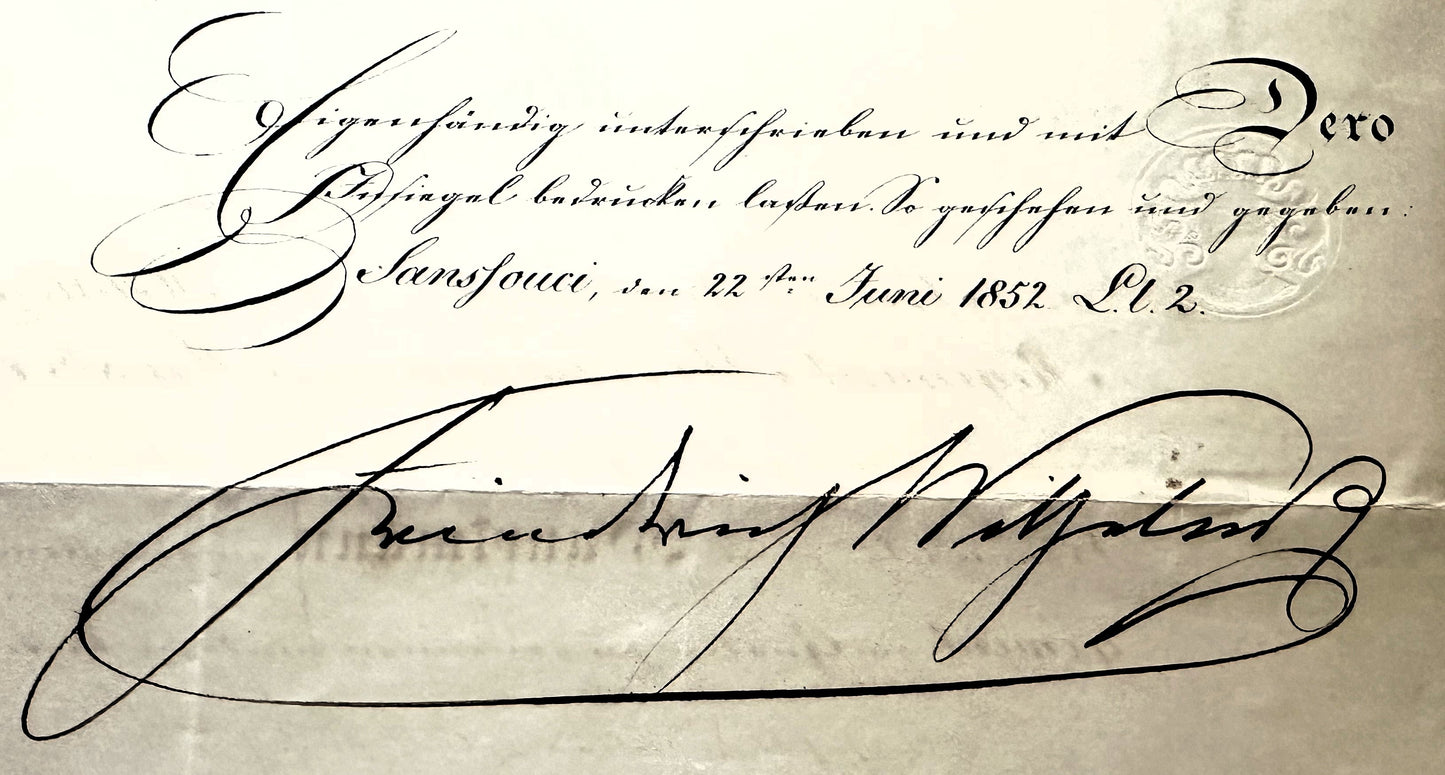 Eigenhändig unterschrieben und mit Dero
Insiegel bedrucken laßen. So geschehen und gegeben:
Sanssouci, den 22sten Juni 1852 L.l. 2.
Friedrich Wilhelm